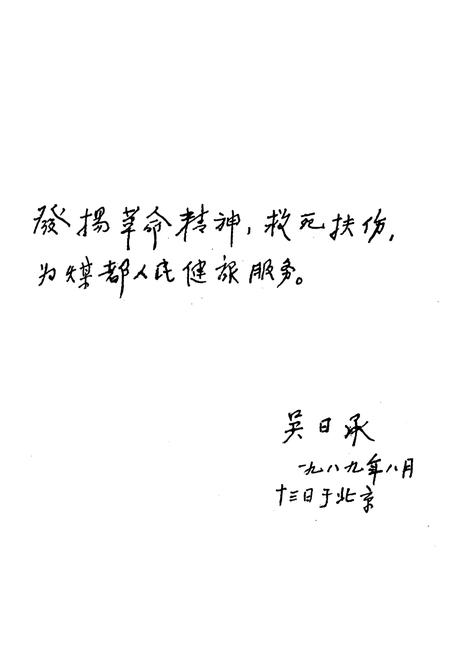 發揚革命精神，救死扶伤，
为煤都人民健康服务。
吴日承
一九八九年八月
十三日于北京